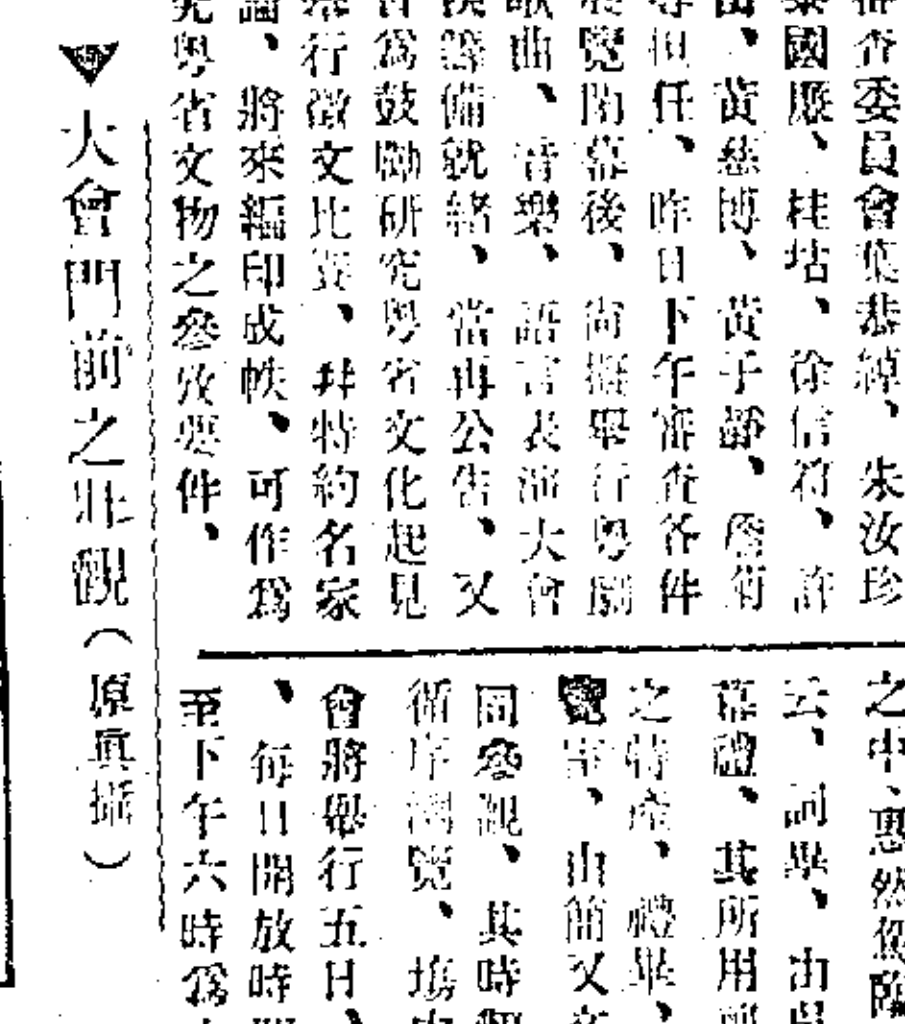 審查委員會葉恭綽、朱汝珍
國恩、桂坫、徐信符、許
、黃慈博、黃子靜、簡又
担任、昨日下午審查各件
展覽閉幕後、尚擬舉行粵劇
歌曲、音樂、語言表演大會
俟籌備就緒、當再公告、又
會爲鼓勵研究粵省文化起見
舉行徵文比賽、并特約名家
論、將來編印成帙、可作爲
究粵省文物之參攷要件、
之中、惠然蒞臨
云、詞畢、由
幕禮、其所用
之特產、禮畢、
覽者、由簡又文
同參觀、其時
循序瀏覽、塲
會將舉行五日、
、每日開放時
至下午六時爲
▼大會門前之壯觀(原眞攝)